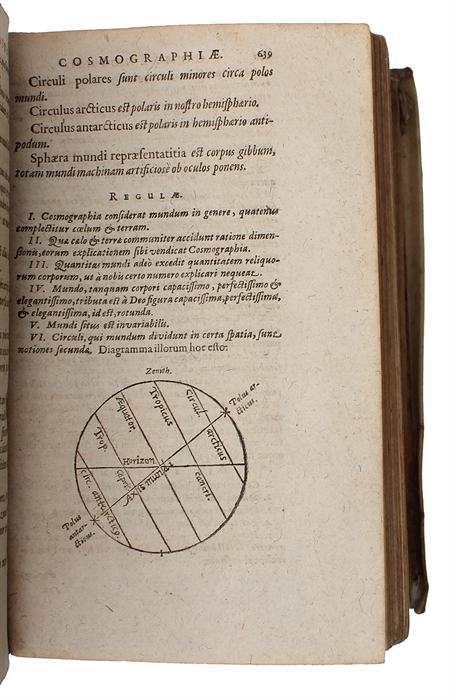 COSMOGRAPHIÆ. 639
Circuli polares sunt circuli minores circa polos
mundi.
Circulus arcticus est polaris in nostro hemisphærio.
Circulus antarcticus est polaris in hemisphærio anti-
podum.
Sphæra mundi repræsentatitia est corpus gibbum,
totam mundi machinam artificiosè ob oculos ponens.
REGULÆ.
I. Cosmographia considerat mundum in genere, quatenus
complectitur cœlum & terram.
II. Quæ cælo & terræ communiter accidunt ratione dimen-
sionis, eorum explicationem sibi vendicat Cosmographia.
III. Quantitas mundi adeò excedit quantitatem reliquo-
rum corporum, ut à nobis certo numero explicari nequeat.
IV. Mundo, tanquam corpori capacissimo, perfectissimo &
elegantissimo, tributa est à Deo figura capacissima, perfectissima,
& elegantissima, id est, rotunda.
V. Mundi situs est invariabilis.
VI. Circuli, qui mundum dividunt in certa spatia, sunt
notiones secundæ. Diagramma illorum hoc esto:
Zenith.
Polus ar-
cticus.
Circul.
arcticus
Tropicus
cancri.
Æquator.
Trop.
capri
Horizon
Axis mundi
Cir. antarcticq.
Polus
antar-
cticus.